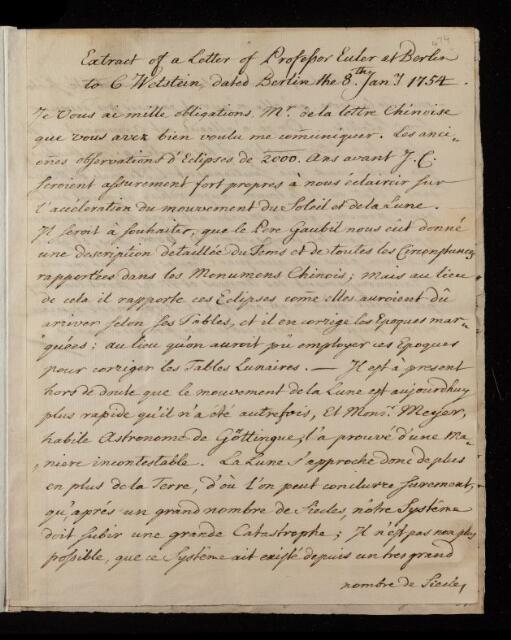 Extract of a Letter of Professor Euler at Berlin
to C Wetstein, dated Berlin the 8th Jany 1754.
Je vous ai mille obligations, Mr. de la lettre Chinoise
que vous avez bien voulu me com̄uniquer. Les anci-
en̄es observations d'Eclipses de 2000. Ans avant J. C.
seroient assurement fort propres à nous éclaircir sur
l'accéleration du mouvement du Soleil et de la Lune.
Il seroit à souhaiter, que le Pere Gaubil nous eut donné
une description détaillée du Tems et de toutes les Circonstances
rapportées dans les Monumens Chinois; mais au lieu
de cela il rapporte ces Eclipses com̄e elles auroient dû
arriver selon ses Tables, et il en corrige les Epoques mar-
quées; au lieu qu'on auroit pû employer ces Epoques
pour corriger les Tables Lunaires. — Il est à present
hors de doute que le mouvement de la Lune est aujourdhuy
plus rapide qu'il n'a été autrefois, Et Monsr. Meyer,
habile Astronome de Göttingue, l'a prouvé d'une ma-
niere incontestable. La Lune s'approche donc de plus
en plus de la Terre, d'où l'on peut conclurre surement,
qu'aprés un grand nombre de Siecles, nôtre Systême
doit subir une grande Catastrophe; Il n'est pas non plus
possible, que ce Systême ait existé depuis un tres grand
nombre de Siecles,